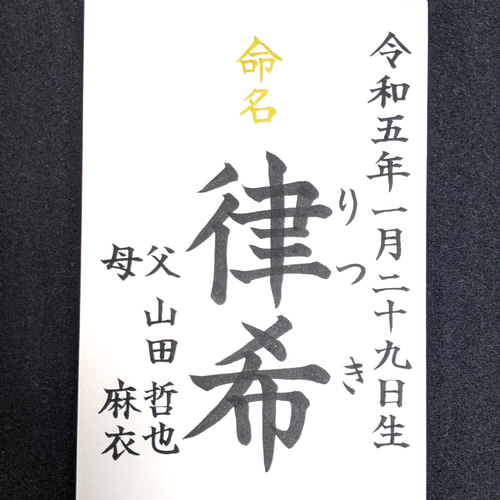 令和五年一月二十九日生
命名
律希
りつき
父 山田 哲也
母 麻衣